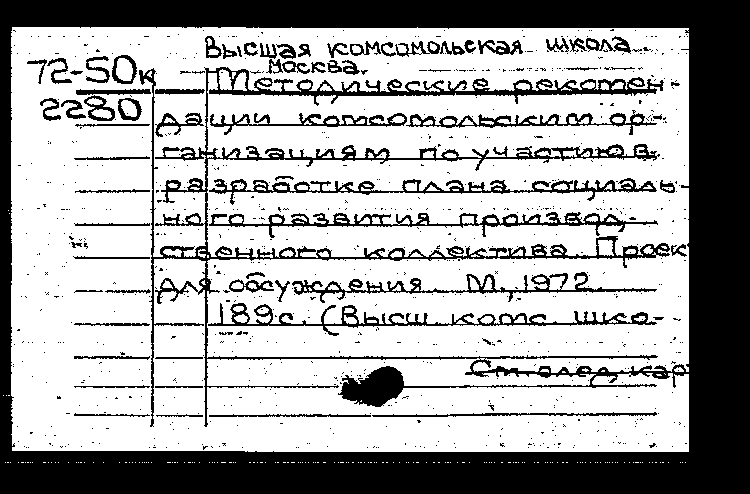 Высшая комсомольская школа.
Москва.
72-50к
2280
Методические рекомен-
дации комсомольским ор-
ганизациям по участию в
разработке плана социаль-
ного развития производ-
ственного коллектива. Проект
для обсуждения. М., 1972.
189с. (Высш. комс. шко-
См. след. кар